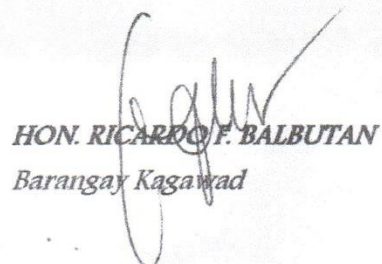 HON. RICARDO F. BALBUTAN
Barangay Kagawad